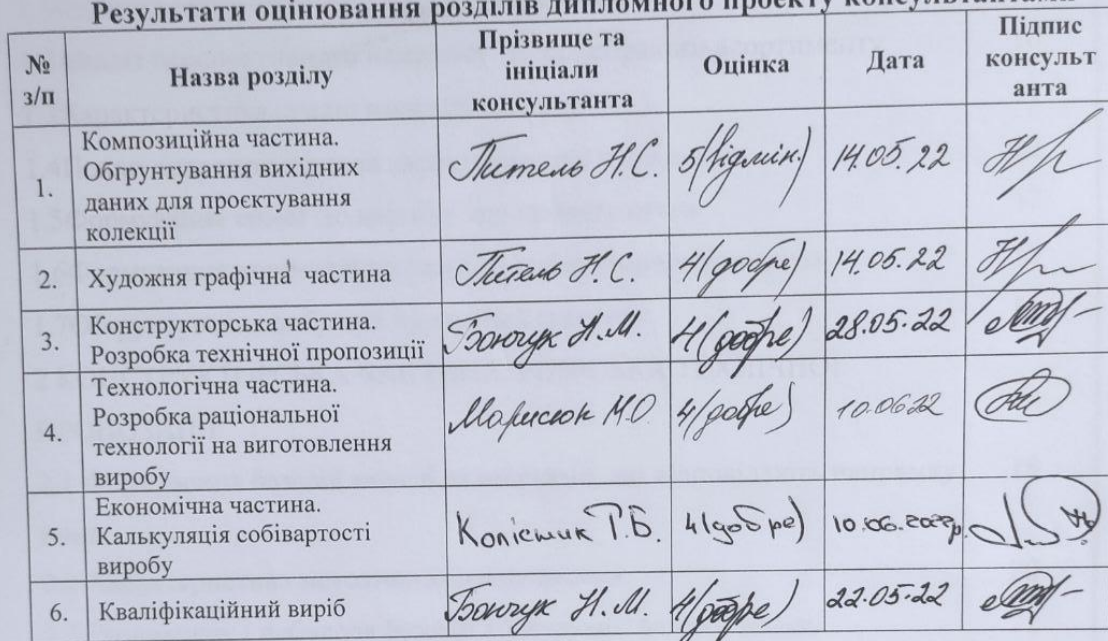 Результати оцінювання розділів дипломного проєкту консультантами
№ з/п
Назва розділу
Прізвище та ініціали консультанта
Оцінка
Дата
Підпис консульт анта
1.
Композиційна частина.
Обгрунтування вихідних
даних для проєктування
колекції
Питель Н.С.
5(відмін.)
14.05.22
2.
Художня графічна частина
Питель Н.С.
4(добре)
14.05.22
3.
Конструкторська частина.
Розробка технічної пропозиції
Бончук Н.М.
4(добре)
28.05.22
4.
Технологічна частина.
Розробка раціональної
технології на виготовлення
виробу
Марисюк М.О
4(добре)
10.06.22
5.
Економічна частина.
Калькуляція собівартості
виробу
Т.Б.
4(добре)
10.06.2022р.
6.
Кваліфікаційний виріб
Бончук Н.М.
4(добре)
22.05.22